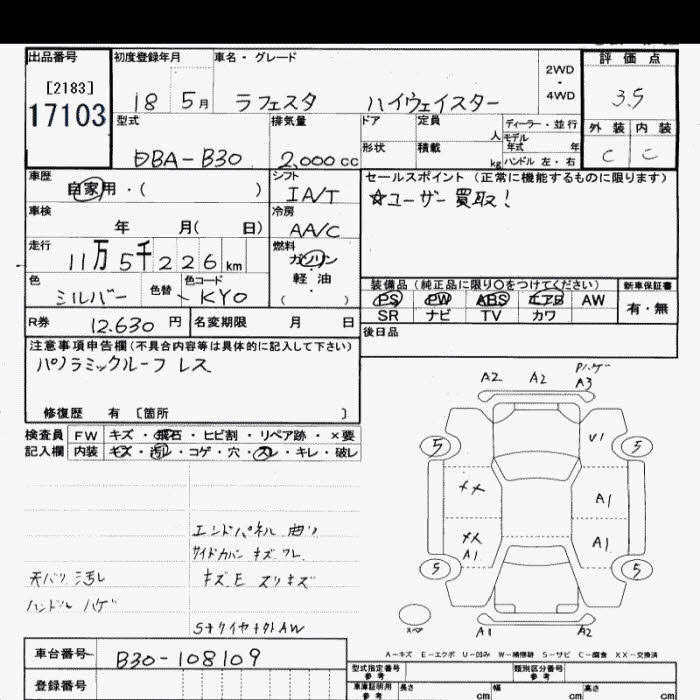 出品番号 初度登録年月 車名・グレード 評価点
[2183] 2WD
17103 18 5月 ラフェスタ ハイウェイスター ・ 4WD 3.5
型式 排気量 ドア 定員 人 ディーラー・並行 外装 内装
モデル年式 年
DBA-B30 2,000cc 形状 積載 kg ハンドル 左・右 C C
車歴 シフト セールスポイント(正常に機能するものに限ります)
自家用・( ) IA/T ☆ユーザー買取!
車検 冷房
年 月( 日) AA/C
走行 燃料
11万5千226km ガソリン
軽油
色 色替 色コード 装備品(純正品に限り○をつけてください) 新車保証書
シルバー KYO ( ) PS PW ABS エアB AW 有・無
SR ナビ TV カワ
R券 12,630円 名変期限 月 日 後日品
注意事項申告欄(不具合内容等は具体的に記入して下さい)
パノラミックルーフ レス
修復歴 有 〔箇所 〕
検査員 FW キズ・飛石・ヒビ割・リペア跡・×要
記入欄 内装 キズ・汚レ・コゲ・穴・スレ・キレ・破レ
A2 A2 A3
5 V1 5
XX A1
XX A1 A1
5 5
スペア A1 A2
エンドパネル 曲リ
サイドカバー キズ ワレ
天バリ 汚レ キズE スリキズ
ハンドル ハゲ
A-キズ E-エクボ U-凹み W-補修跡 S-サビ C-腐食 XX-交換済
車台番号 B30-108109 型式指定番号 参考 類別区分番号 参考
登録番号 車庫証明用 参考 長さ cm 幅 cm 高さ cm